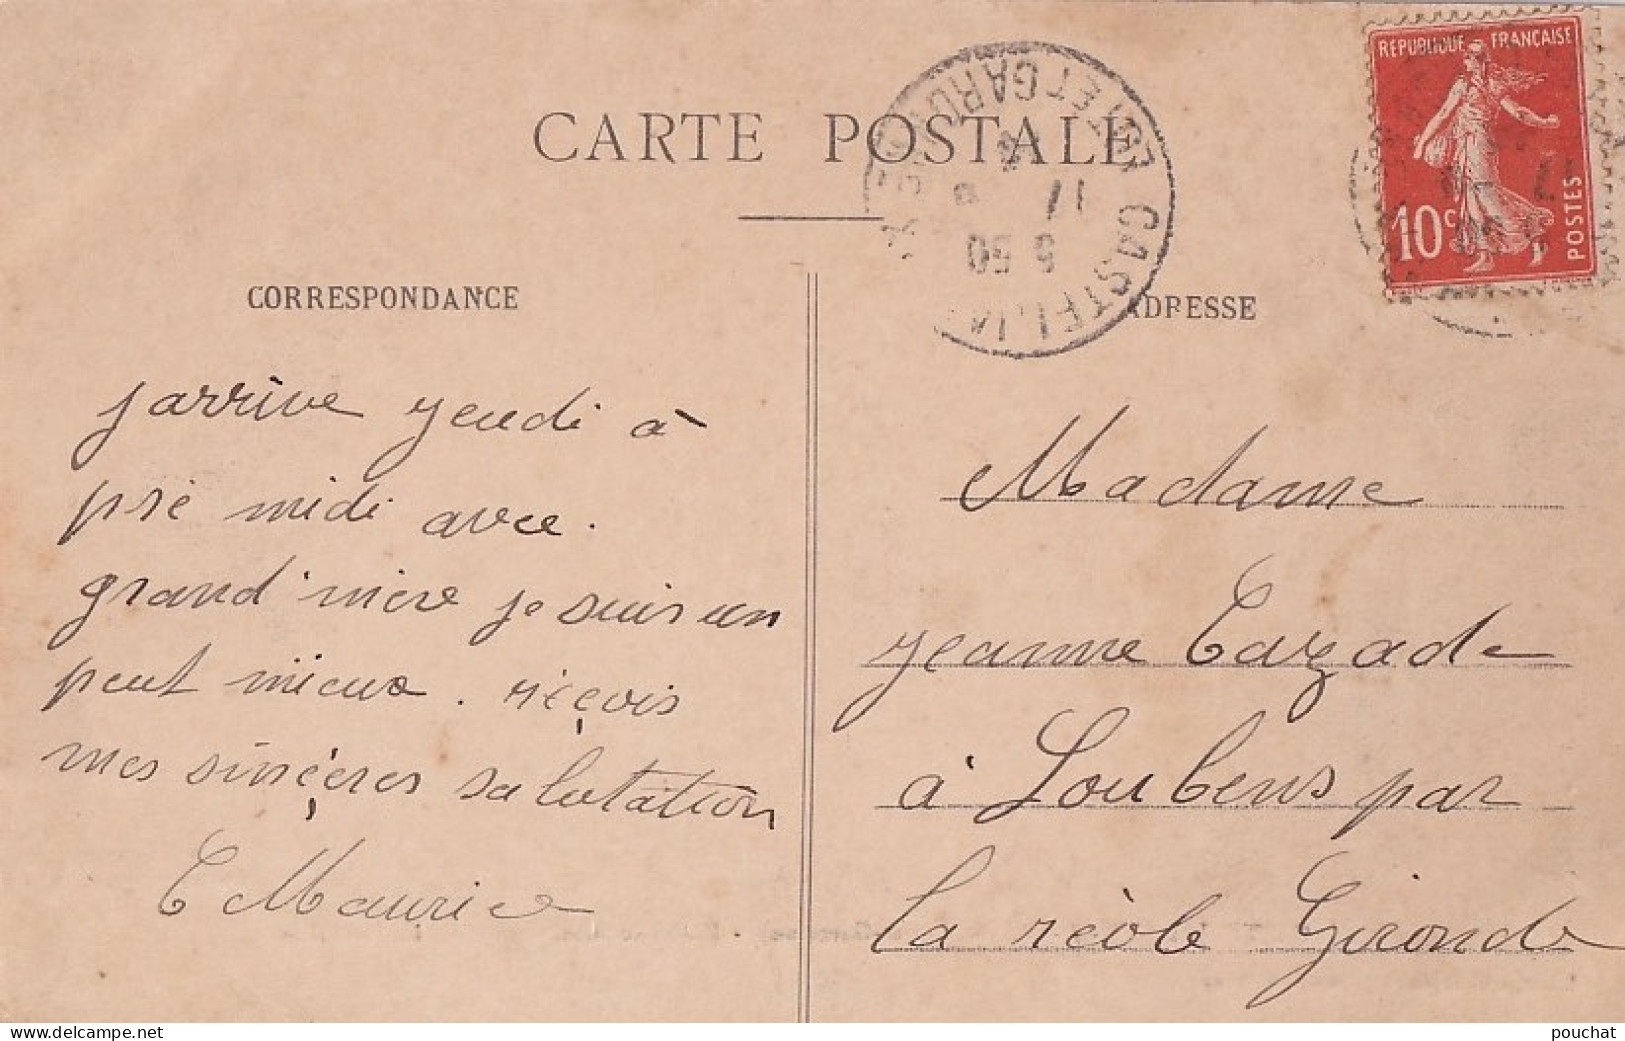 CARTE POSTALE
REPUBLIQUE FRANÇAISE
10c
POSTES
CASTELJA
ET GAR
17
6 50
CORRESPONDANCE
jarrive jeudi à
pré midi avec.
grand mère je suis un
peut mieux. réçois
mes sinçeres salutation
C Maurice
ADRESSE
Madame
jeanne Cazade
à Loubens par
la réole Gironde
www.delcampe.net
pouchat